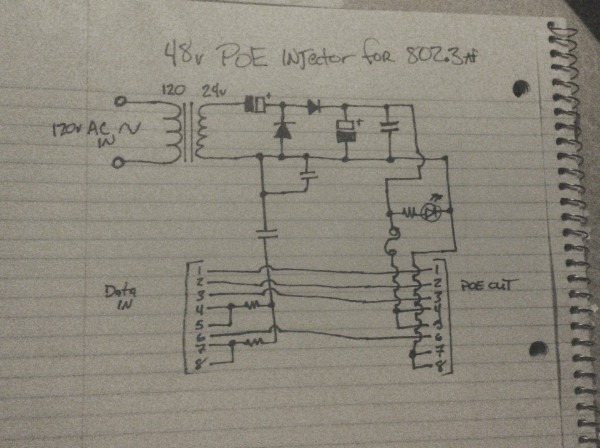 48v PoE INjector for 802.3af
120 24v
120v AC ~
IN
+
+
Data
IN
1
2
3
4
5
6
7
8
1
2
3
4
5
6
7
8
POE OUT